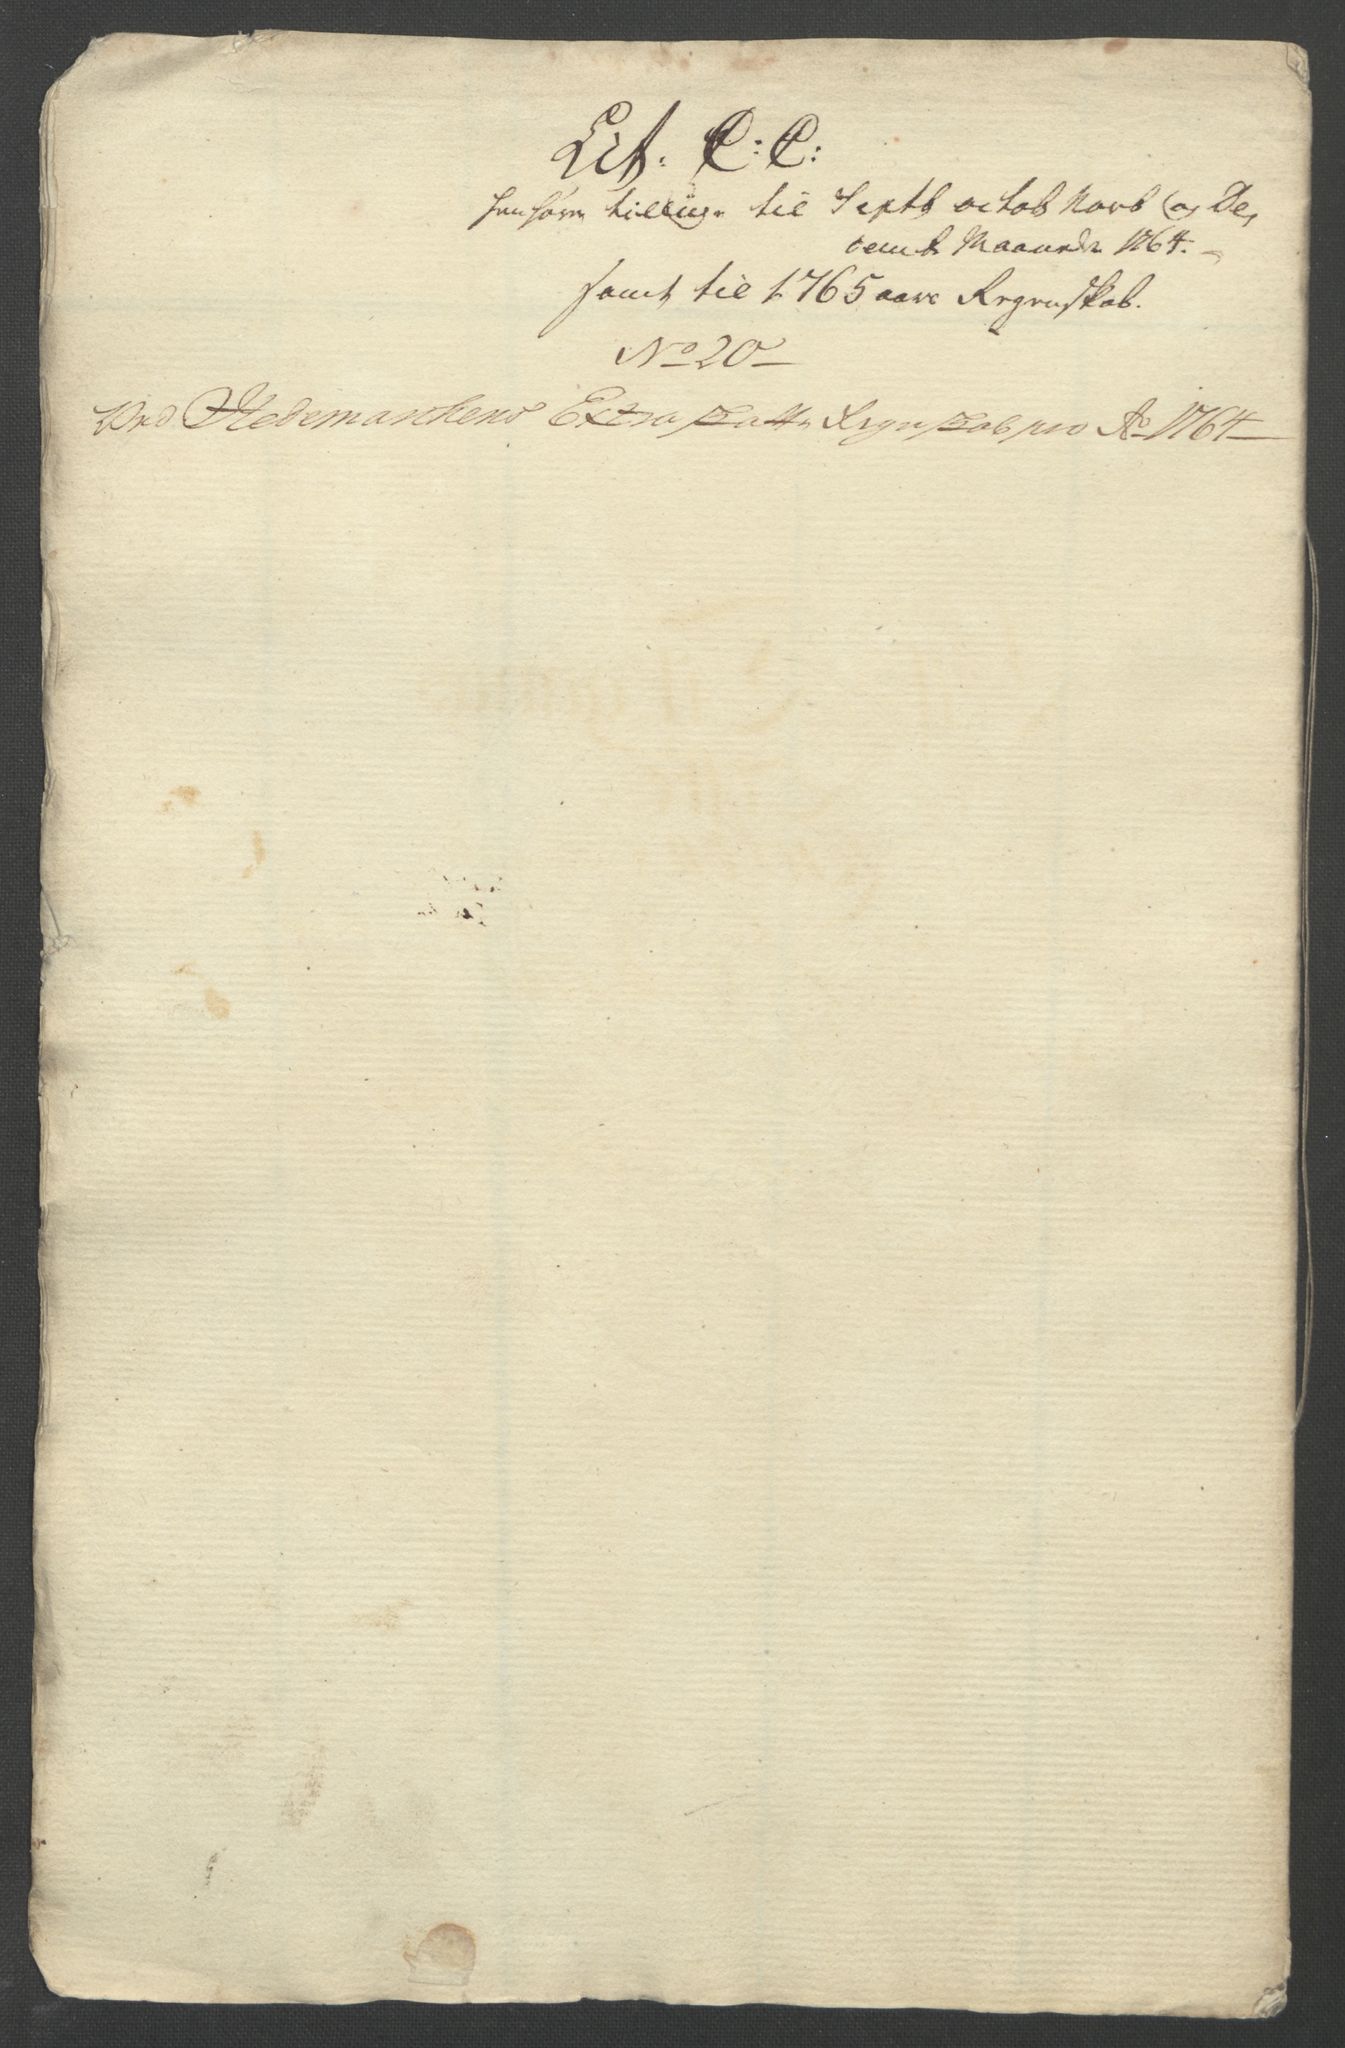 Lit. C: C:
henhörer tillige til Septb octob Novb og De,
cemb Maaneder 1764.
samt til 1765 aars Regenskab.
No 20
Ved Hedemarkens Extra Skatts Regnskab pro Ao 1764